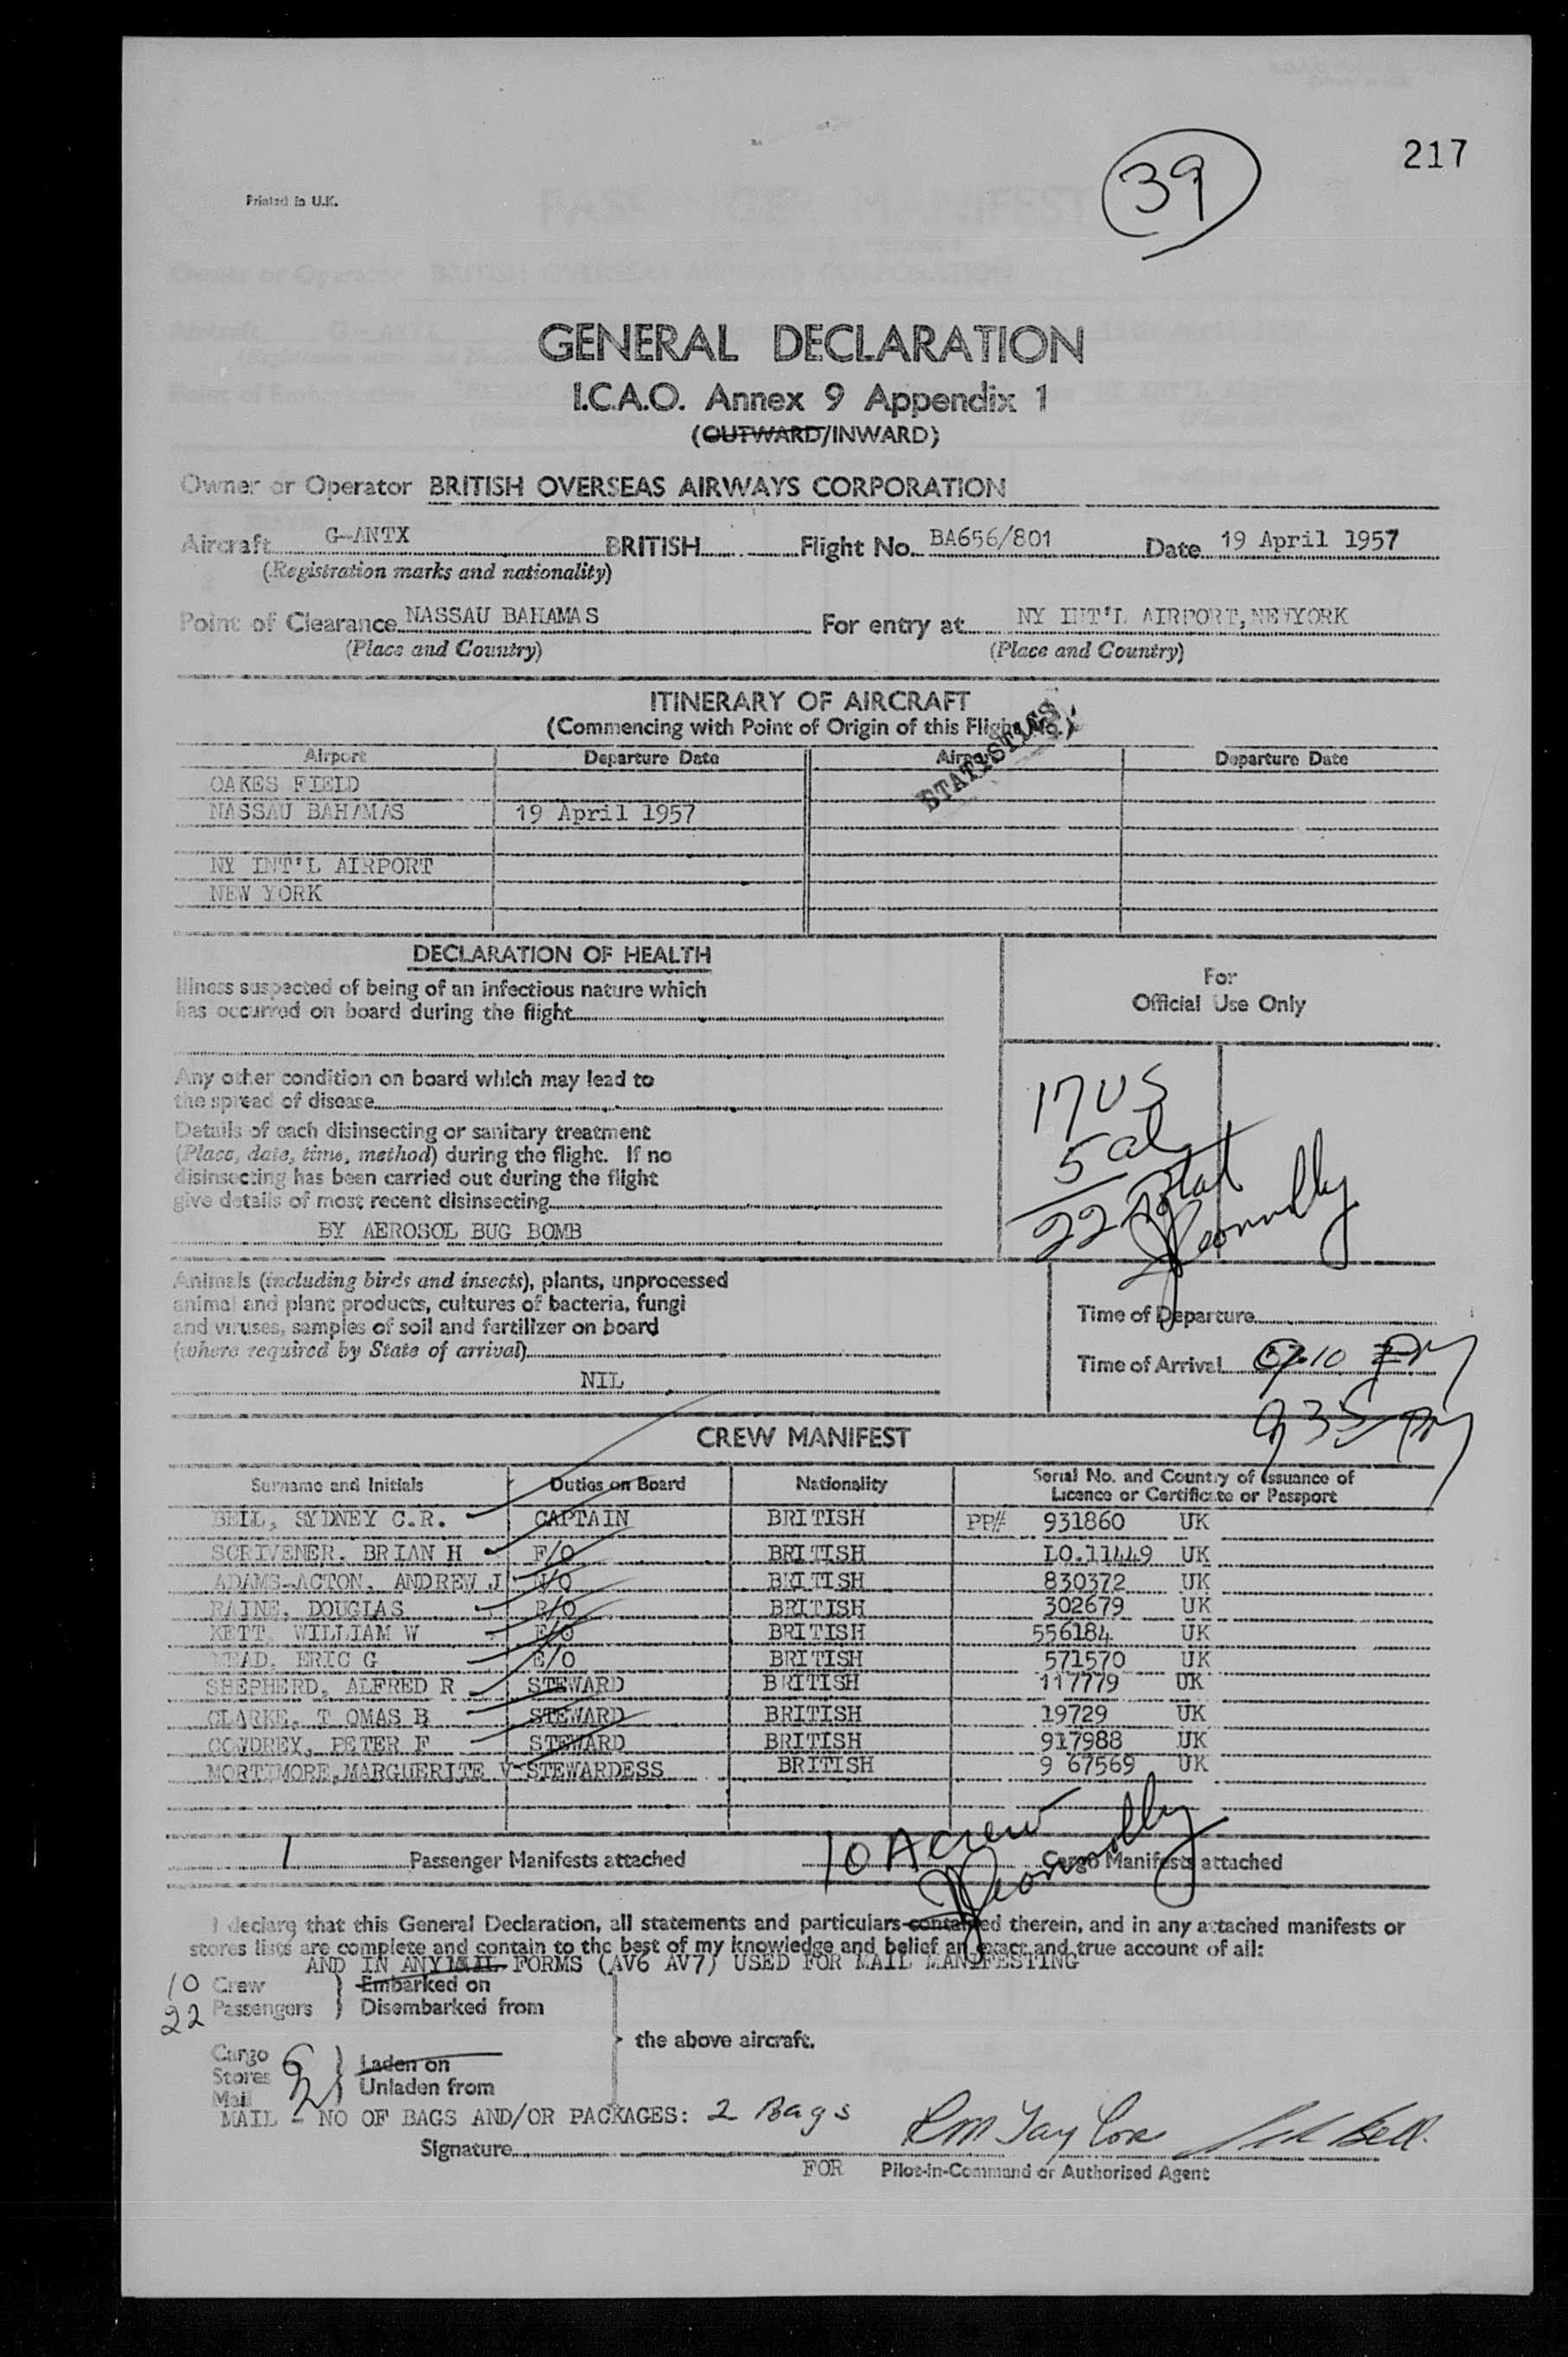 217
39
Printed in U.K.
GENERAL DECLARATION
I.C.A.O. Annex 9 Appendix 1
(OUTWARD/INWARD)
Owner or Operator BRITISH OVERSEAS AIRWAYS CORPORATION
Aircraft G-ANTX BRITISH Flight No. BA656/801 Date 19 April 1957
(Registration marks and nationality)
Point of Clearance NASSAU BAHAMAS For entry at NY INT'L AIRPORT, NEWYORK
(Place and Country) (Place and Country)
ITINERARY OF AIRCRAFT
(Commencing with Point of Origin of this Flight No.)
STATISTICS
Airport Departure Date Airport Departure Date
OAKES FIELD
NASSAU BAHAMAS 19 April 1957
NY INT'L AIRPORT
NEW YORK
DECLARATION OF HEALTH
Illness suspected of being of an infectious nature which
has occurred on board during the flight
Any other condition on board which may lead to
the spread of disease
Details of each disinsecting or sanitary treatment
(Place, date, time, method) during the flight. If no
disinsecting has been carried out during the flight
give details of most recent disinsecting
BY AEROSOL BUG BOMB
For
Official Use Only
17 US
5 al
22 Total
Connolly
Animals (including birds and insects), plants, unprocessed
animal and plant products, cultures of bacteria, fungi
and viruses, samples of soil and fertilizer on board
(where required by State of arrival)
NIL
Time of Departure
Time of Arrival 10 PM
935 PM
CREW MANIFEST
Surname and Initials Duties on Board Nationality Serial No. and Country of Issuance of
Licence or Certificate or Passport
BELL, SYDNEY C.R. CAPTAIN BRITISH PP# 931860 UK
SCRIVENER, BRIAN H F/O BRITISH LO.11449 UK
ADAMS-ACTON, ANDREW J N/O BRITISH 830372 UK
RAINE, DOUGLAS R/O BRITISH 302679 UK
KETT, WILLIAM W E/O BRITISH 556184 UK
MEAD, ERIC G E/O BRITISH 571570 UK
SHEPHERD, ALFRED R STEWARD BRITISH 117779 UK
CLARKE, T OMAS B STEWARD BRITISH 19729 UK
COWDREY, PETER F STEWARD BRITISH 917988 UK
MORTIMORE,MARGUERITE V STEWARDESS BRITISH 9 67569 UK
1 Passenger Manifests attached 10 A crew Cargo Manifests attached
Connolly
I declare that this General Declaration, all statements and particulars contained therein, and in any attached manifests or
stores lists are complete and contain to the best of my knowledge and belief an exact and true account of all:
AND IN ANY MAIL FORMS (AV6 AV7) USED FOR MAIL MANIFESTING
10 Crew } Embarked on
22 Passengers } Disembarked from
the above aircraft.
Cargo
Stores } Laden on
Mail Unladen from
MAIL - NO OF BAGS AND/OR PACKAGES: 2 Bags
Signature RM Taylor Bell
FOR Pilot-in-Command or Authorised Agent